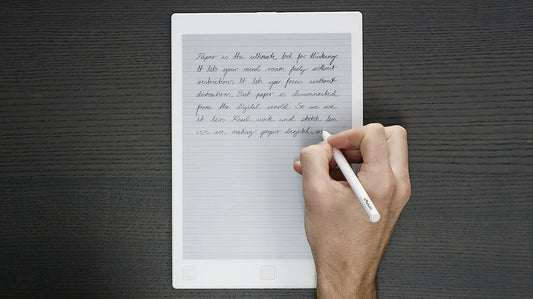 Paper is the ultimate tool for thinking.
It lets your mind roam freely without
restrictions. It lets you focus without
distractions. But paper is disconnected
from the digital world. So we use
it less. Read, write and sketch less
we are making paper digital,